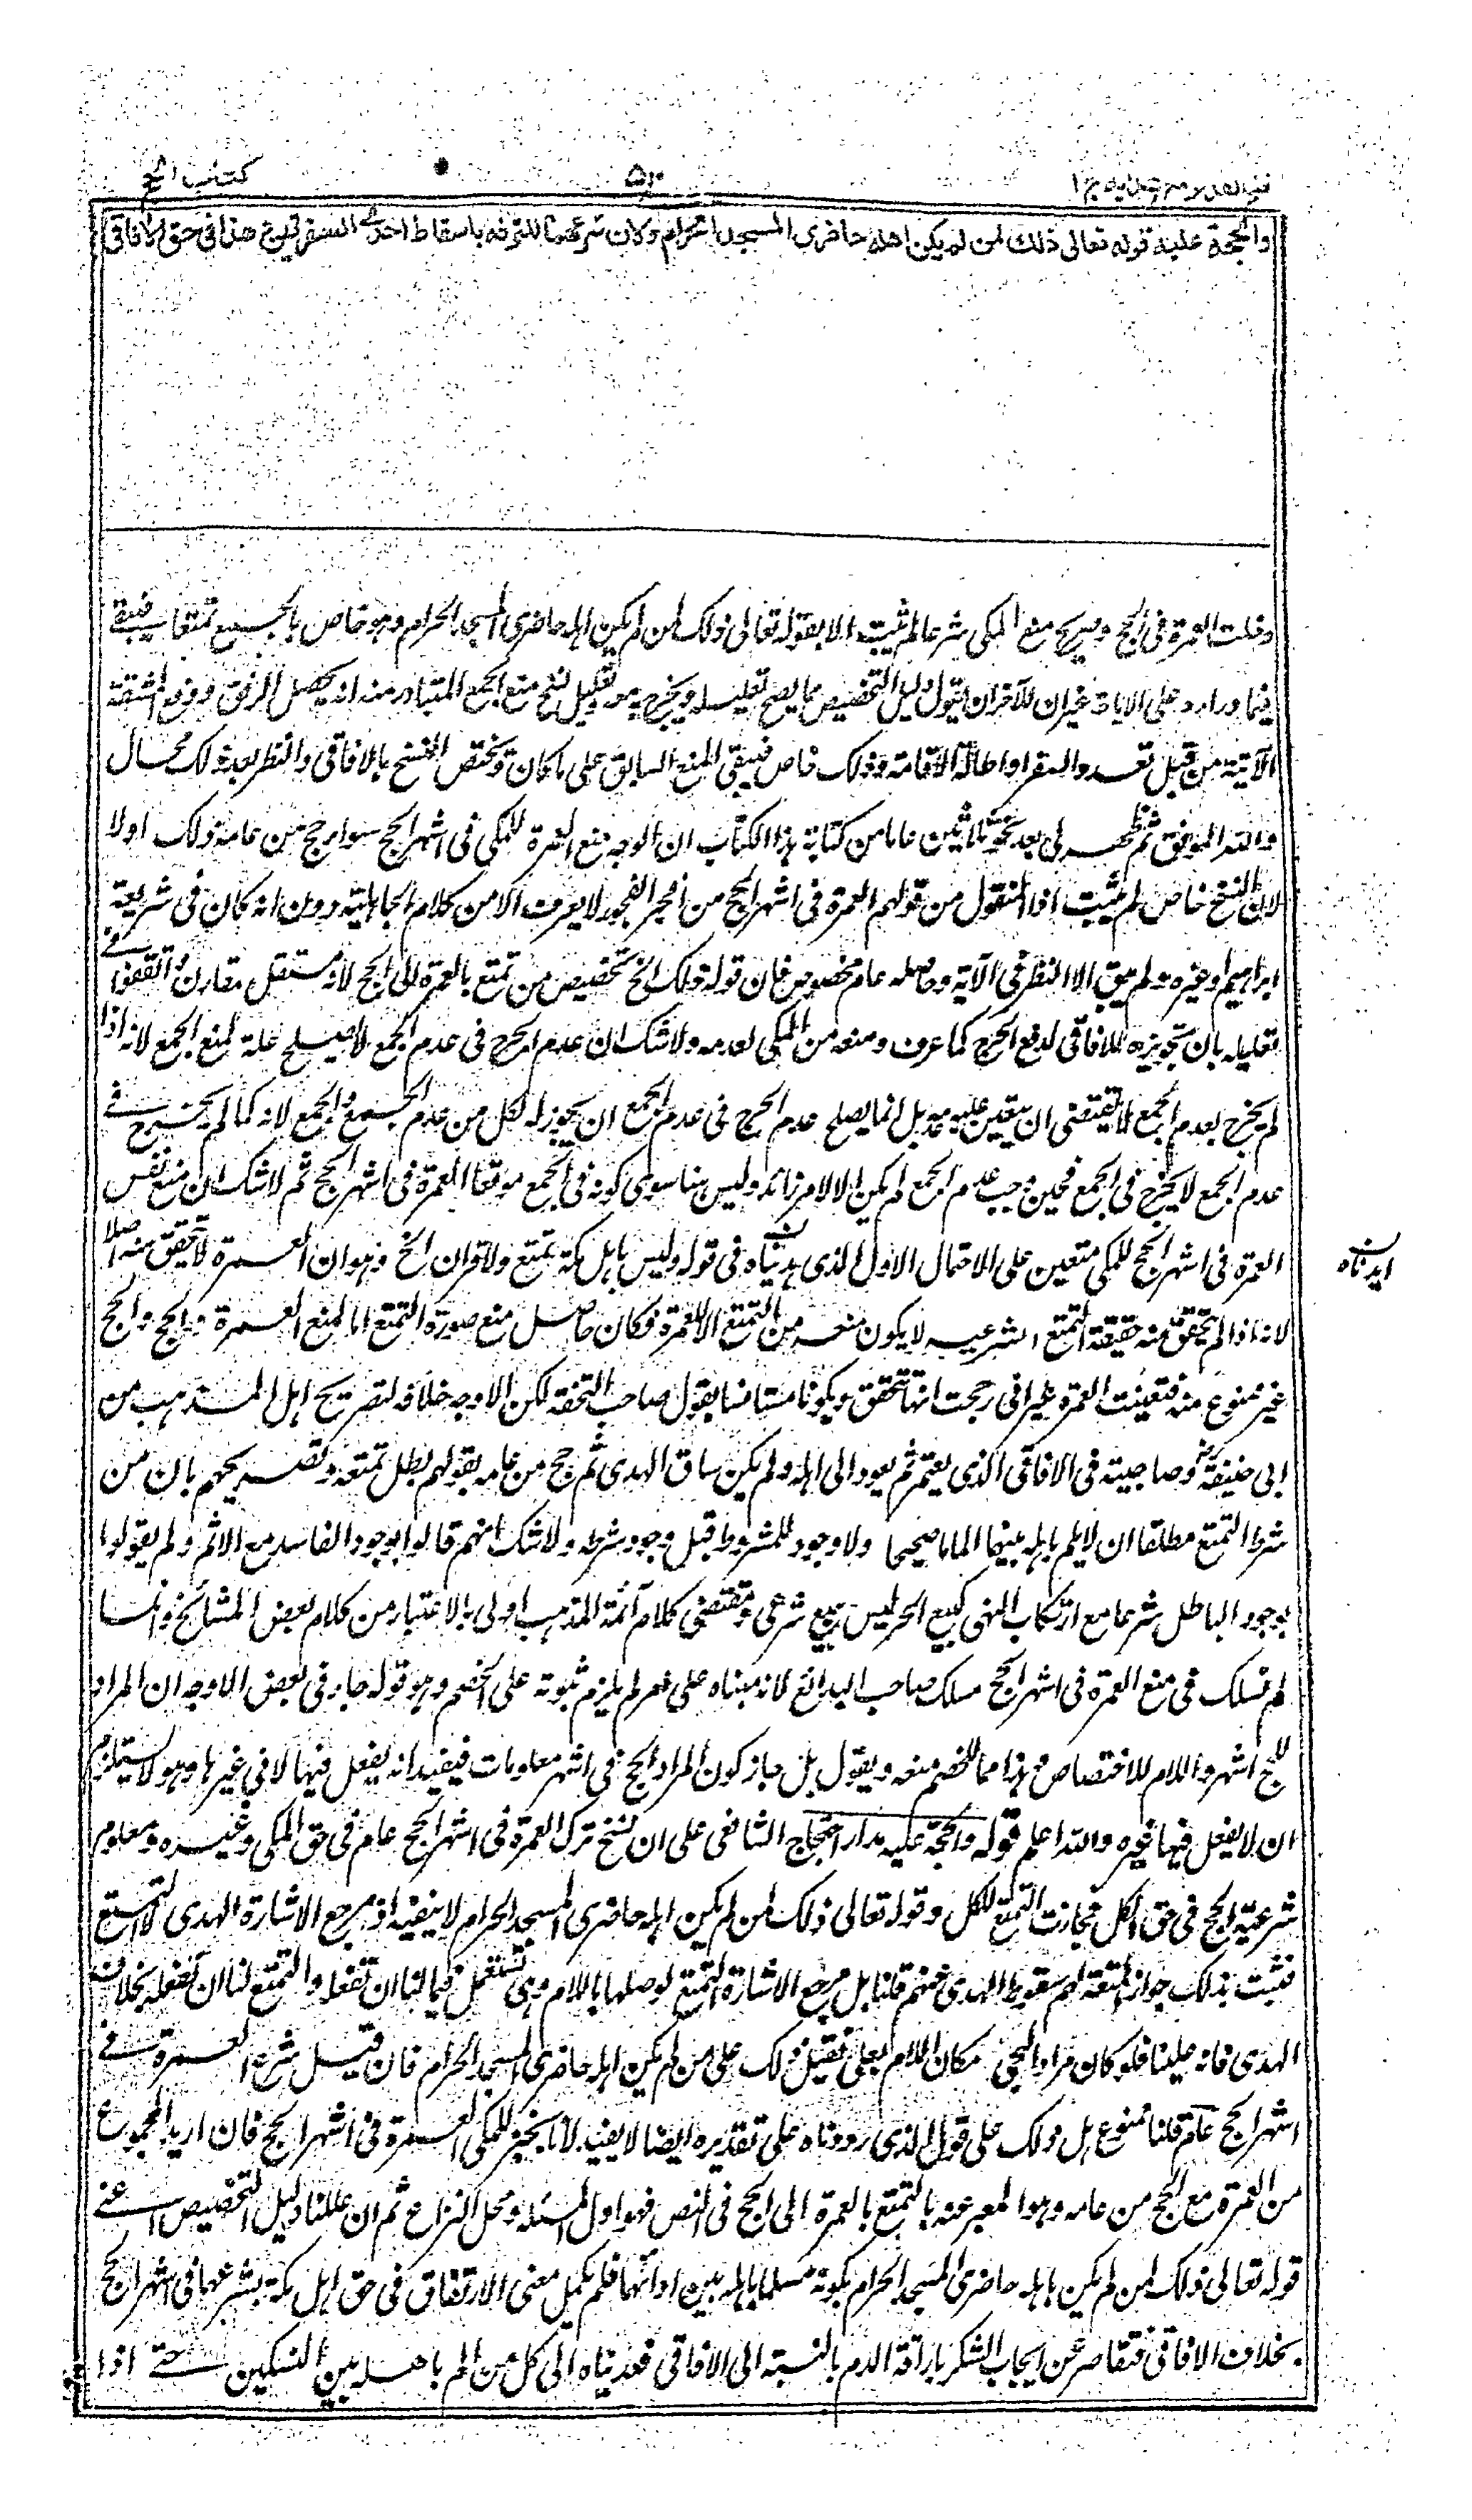 فتح القدير مع هدايه ج ١
كتاب الحج
والحجة عليه قوله تعالى ذلك لمن لم يكن اهله حاضرى المسجد الحرام ولان شرعهما للترفه باسقاط احدى السفرتين وهذا فى حق الآفاقى
دخلت العمرة فى الحج وصريح منع المكى شرعا لم يثبت الا بقوله تعالى ذلك لمن لم يكن اهله حاضرى المسجد الحرام وهو خاص بالجمع تمتعا فيبقى
فيما وراءه على الاباحة غير ان للآخر ان يقول دليل التخصيص مما يصح تعليله ويخرج به معه وتعليل نسخ منع الجمع المتبادر منه انه يحصل الرفق ودفع المشقة
الآتية من قبل تعدد السفر او اطالة الاقامة وذلك خاص فيبقى المنع السابق على ما كان ويختص النسخ بالافاقى والنظر بعد ذلك مجال
والله الموفق ثم ظهر لى بعد نحو ثلاثين عاما من كتابة هذا الكتاب ان الوجه منع العمرة للمكى فى اشهر الحج سواء حج من عامه ذلك اولا
لان النسخ خاص لم يثبت اذ المنقول من قولهم العمرة فى اشهر الحج من افجر الفجور لا يعرف الا من كلام الجاهلية دون انه كان فى شريعة
ابراهيم او غيره ولم يبق الا النظر فى الآية وحاصله عام مخصوص فان قوله ذلك الخ تخصيص من تمتع بالعمرة الى الحج لانه مستقل مقارن واتفقوا فى
تعليله بان تجويزه للافاقى لدفع الحرج كما عرف ومنعه من المكى لعدمه ولا شك ان عدم الحرج فى عدم الجمع لا يصلح علة لمنع الجمع لانه اذا
لم يحرج بعدم الجمع لا يقتضى ان يتعين عليه عدمه بل انما يصلح عدم الحرج فى عدم الجمع ان يجوز له كل من عدم الجمع والجمع لانه كما لم يحرج فى
عدم الجمع لا يحرج فى الجمع فحين وجب عدم الجمع لم يكن الا لامر زائد وليس هنا سوى كونه فى الجمع موقعا العمرة فى اشهر الحج ثم لا شك ان منع نفس
العمرة فى اشهر الحج للمكى متعين على الاحتمال الاول الذى ابدناه فى قوله وليس باهل مكة تمتع ولا قران الخ وهو ان العمرة لا تتحقق منه اصلا
ابدناه
لانه اذا لم يتحقق منه حقيقة التمتع الشرعيه لا يكون منعه من التمتع الا للعمرة فكان حاصل منع صورة التمتع اما لمنع العمرة والحج والحج
غير ممنوع منه فتعينت العمرة غير انى رجحت انها تتحقق ويكون مستانسا بقول صاحب التحفة لكن الاوجه خلافه لتصريح اهل المذهب من
ابى حنيفة وصاحبيه فى الافاقى الذى يعتمر ثم يعود الى اهله ولم يكن ساق الهدى ثم حج من عامه بقولهم بطل تمتعه وتصريحهم بان من
شرط التمتع مطلقا ان لا يلم باهله بينهما الماما صحيحا ولا وجود للمشروط قبل وجود شرطه ولا شك انهم قالوا بوجود الفاسد مع الاثم ولم يقولوا
بوجود الباطل شرعا مع ارتكاب النهى كبيع الحر ليس ببيع شرعى ومقتضى كلام آئمة المذهب اولى بالاعتبار من كلام بعض المشائخ وانما
لم نسلك فى منع العمرة فى اشهر الحج مسلك صاحب البدائع لانه بناه على امر لم يلزم ثبوته على الخصم وهو قوله جاء فى بعض الاوجه ان المراد
للحج اشهر واللام للاختصاص وهذا مما للخصم منعه ويقول بل جاز كون المراد الحج فى اشهر معلومات فيفيد انه يفعل فيها لا فى غيرها وهو لا يستلزم
ان لا يفعل فيها غيره والله اعلم قوله والحجة عليه مدار احتجاج الشافعى على ان نسخ ترك العمرة فى اشهر الحج عام فى حق المكى وغيره ومعلوم
شرعية الحج فى حق الكل فجازت التمتع للكل وقوله تعالى ذلك لمن لم يكن اهله حاضرى المسجد الحرام لا ينفيه اذ مرجع الاشارة الهدى لا التمتع
فثبت بذلك جواز المتعة لهم وسقوط الهدى عنهم قلنا بل مرجع الاشارة التمتع لوصلها باللام وهى تستعمل فيما لنا ان نفعله والتمتع لنا ان نفعله بخلاف
الهدى فانه علينا فلو كان مرادا لجئ مكان اللام بعلى فقيل ذلك على من لم يكن اهله حاضرى المسجد الحرام فان قيل شرع العمرة فى
اشهر الحج عام قلنا ممنوع بل ذلك على قول الذى رددناه على تقديره ايضا لا يفيد لانا نجيز للمكى العمرة فى اشهر الحج فان اريد المجموع
من العمرة مع الحج من عامه وهو المعبر عنه بالتمتع بالعمرة الى الحج فى النص فهو اول المسئلة ومحل النزاع ثم ان عللنا دليل التخصيص اعنى
قوله تعالى ذلك لمن لم يكن اهله حاضرى المسجد الحرام بكونه مسلما باهله بين ادائهما فلم يكمل معنى الارتفاق فى حق اهل مكة بشرعها فى اشهر الحج
بخلاف الافاقى فتقاصر عن ايجاب الشكر باراقة الدم بالنسبة الى الافاقى فعديناه الى كل من الم باهله بين النسكين حتى اذا